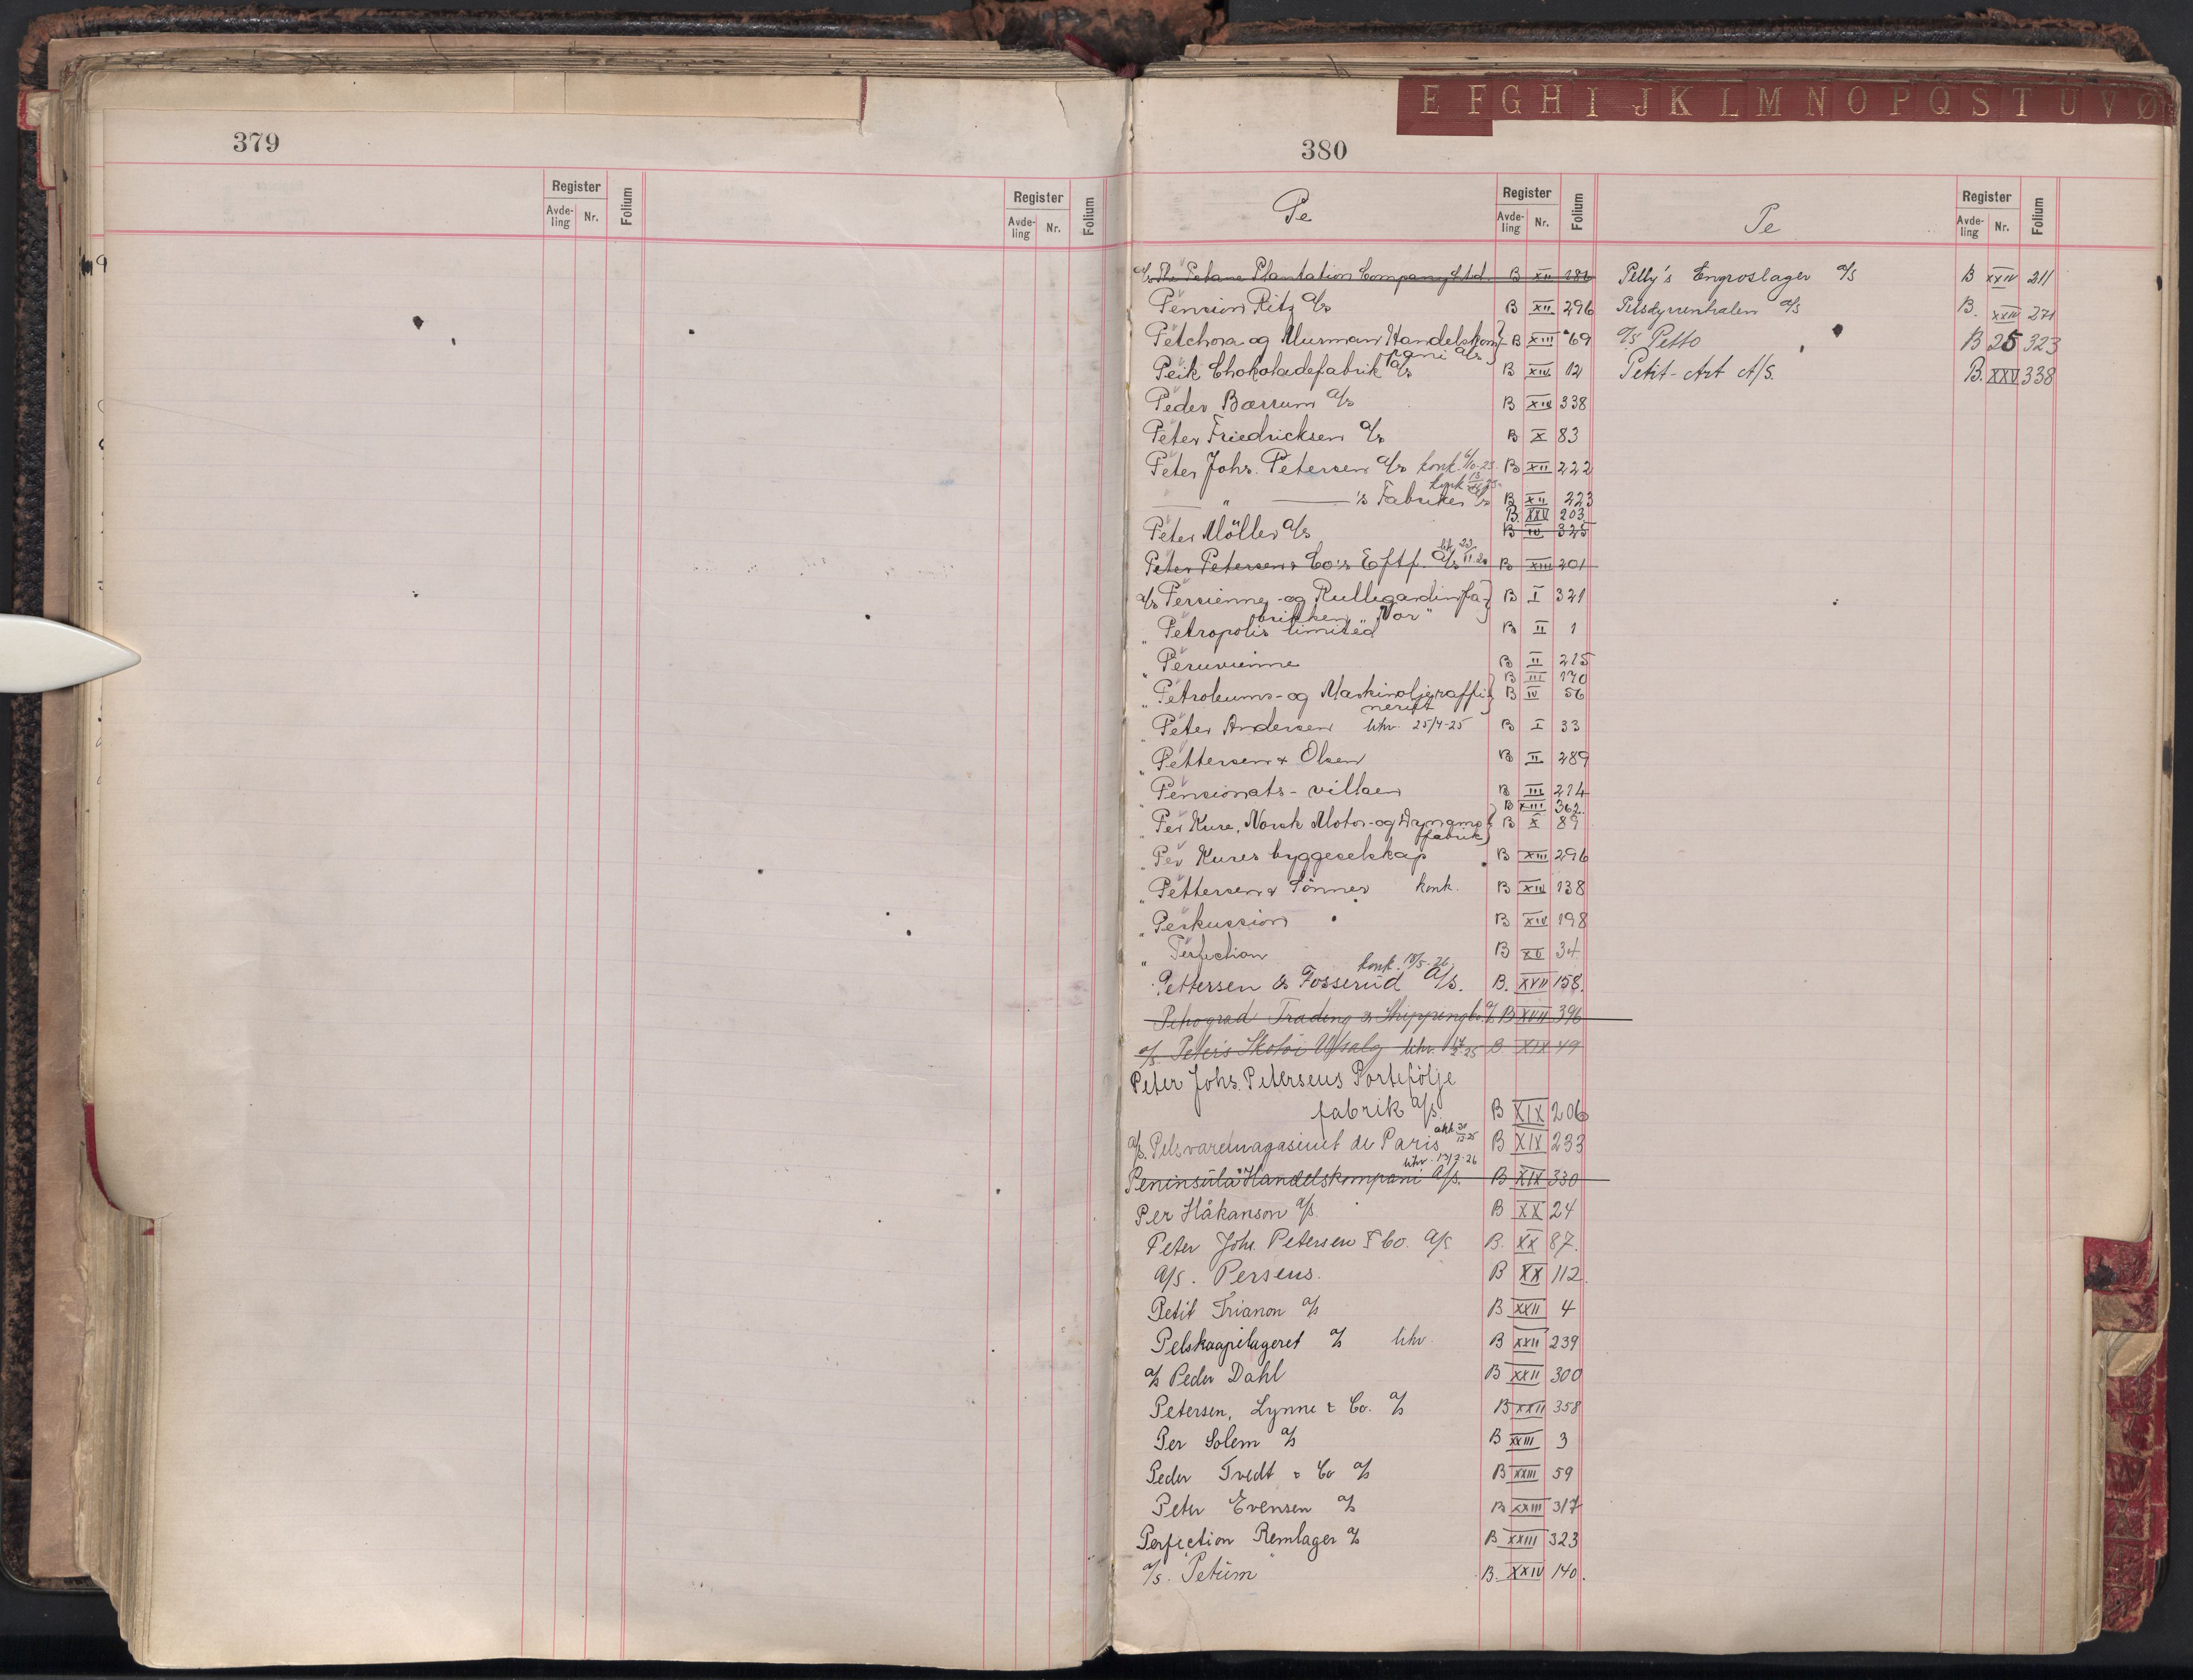 E F G H I J K L M N O P Q S T U V Ø
379
Register Folium Register Folium
Avde-ling Nr. Avde-ling Nr.
380
Pe Register Folium Pe Register Folium
Avde-ling Nr. Avde-ling Nr.
a/s The Petane Plantation Company Ltd. B XII 186
Pension Ritz a/s B XII 296
Petchora og Murman Handelskom- B XIII 69
pani a/s
Peik Chokoladefabrik a/s B XIV 12
Peder Bærrum a/s B XIV 338
Peter Friedricksen a/s B X 83
Peter Johs. Petersen a/s konk. 6/10-23. B XII 222
konk
— " — 's Fabriker a/s B XII 223
B. XXV 203
Peter Möller a/s B IV 325
Peter Petersen & Co's Eftf. a/s B XIII 201
a/s Persienne- og Rullegardinfa- B I 321
brikken "Nor"
" Petropolis limited B II 1
" Peruvienne B II 215
B III 170
" Petroleums- og Maskinoljeraffi- B IV 56
neriet
" Peter Andersen likv. 25/4-25 B I 33
" Pettersen & Olsen B II 289
" Pensionats-villaen B III 214
B XIII 362.
" Per Kure, Norsk Motor- og Dynamo- B X 89
fabrik
" Per Kures byggeselskap B XIII 296
" Pettersen & Sönner konk. B XIV 138
" Perkussion B XIV 198
" Perfection B XV 34
konk. 18/5-26
Pettersen & Fosserud A/S. B. XVII 158.
Petrograd Trading & Shipping Co. a/s B XVII 396
a/s Peter's Skotöi Utsalg likv. B XIX 49
Peter Johs. Petersens Portefölje
fabrik a/s. B XIX 206
a/s. Pelsvaremagasinet de Paris B XIX 233
likv. 13/7-26
Peninsula Handelskompani A/s. B XIX 330
Per Håkanson a/s. B XX 24
Peter Johs. Petersen & Co. A/S B. XX 87.
A/S. Perseus. B XX 112.
Petit Trianon a/s B XXII 4
Pelskaapelageret a/s likv. B XXII 239
a/s Peder Dahl B XXII 300
Petersen, Lynne & Co. a/s B XXII 358
Per Solem a/s B XXIII 3
Peder Tvedt & Co a/s B XXIII 59
Peter Evensen a/s B XXIII 317
Perfection Remlager a/s B XXIII 323
a/s. "Petum" B. XXIV 140.
Pelly's Engroslager a/s B XXIV 211
Pelsdyrcentralen a/s B. XXIV 271
a/s Petto B 25 323
Petit-Art A/S. B. XXV 338